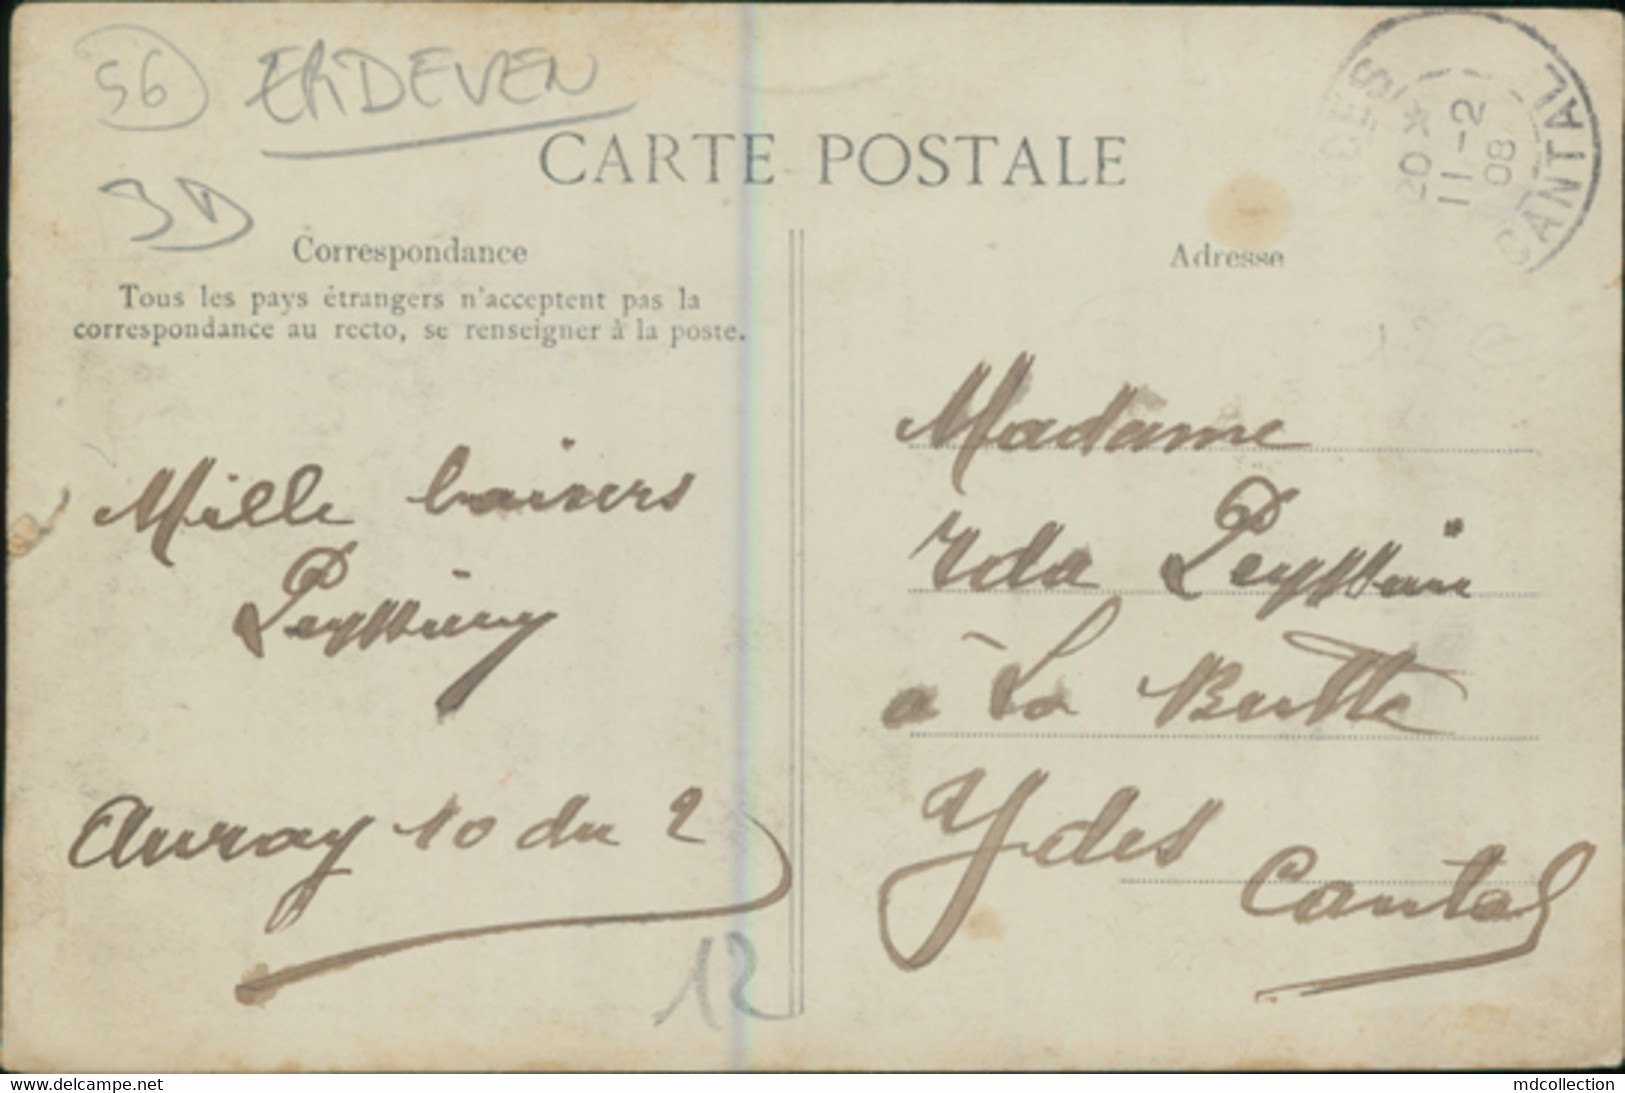 56 ERDEVEN
CARTE POSTALE
Correspondance
Tous les pays étrangers n'acceptent pas la
correspondance au recto, se renseigner à la poste.
Mille baisers
Auray 10 du 2
12
YDES CANTAL
20 *
11-2
08
Adresse
Madame
Ida
à La Butte
Ydes
Cantal
www.delcampe.net
mdcollection